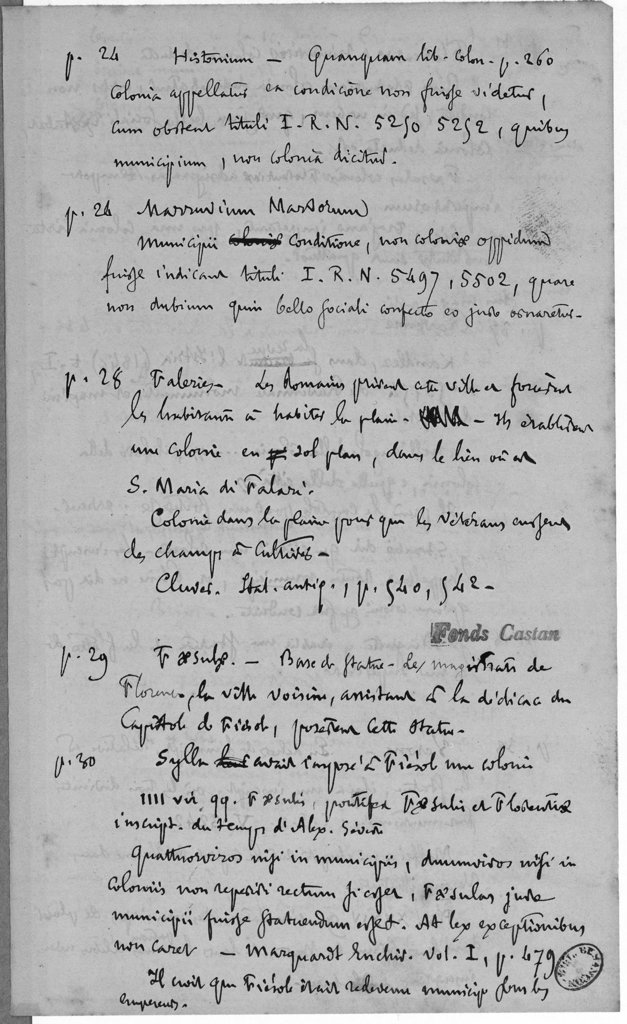 p. 24 Histonium — Quanquam lib. Colon. p. 260
Colonia appellatur ea condicione non fuisse videtur,
cum obstent tituli I. R. N. 5250 5252, quibus
municipium, non colonia dicitur.
p. 24 Marruvium Marsorum
Municipii colonie conditione, non coloniæ oppidum
fuisse indicant tituli I. R. N. 5497, 5502, quare
non dubium quin bello sociali confecto eo jure ornaretur.
p. 28 Faleries — Les Romains prirent cette ville et forcèrent
les habitants à habiter la plaine — Ils établirent
une colonie en sol plan, dans le lieu où est
S. Maria di Falari.
Colonie dans la plaine pour que les vétérans eussent
des champs à cultiver —
Cluver. Ital. antiq., p. 540, 542 —
Fonds Castan
p. 29 Fæsulæ. — Base de statue — Les magistrats de
Florence, la ville voisine, assistant à la dédicace du
Capitole de Fiésole, posèrent cette statue —
p. 30 Sylla avait imposé à Fiésole une colonie
IIII vir. qq. Fæsulis, pontifex Fæsulis et Florentiæ
inscript. du temps d'Alex. Sévère
Quattuorviros nisi in municipiis, duumviros nisi in
Coloniis non reperiri rectum si esset, Fæsulas jure
municipii fuisse statuendum esset. At lex exceptionibus
non caret — Marquardt Enchir. Vol. I, p. 479
Il croit que Fiésole était redevenu municipe sous les
empereurs.
BIBL. BESANÇON